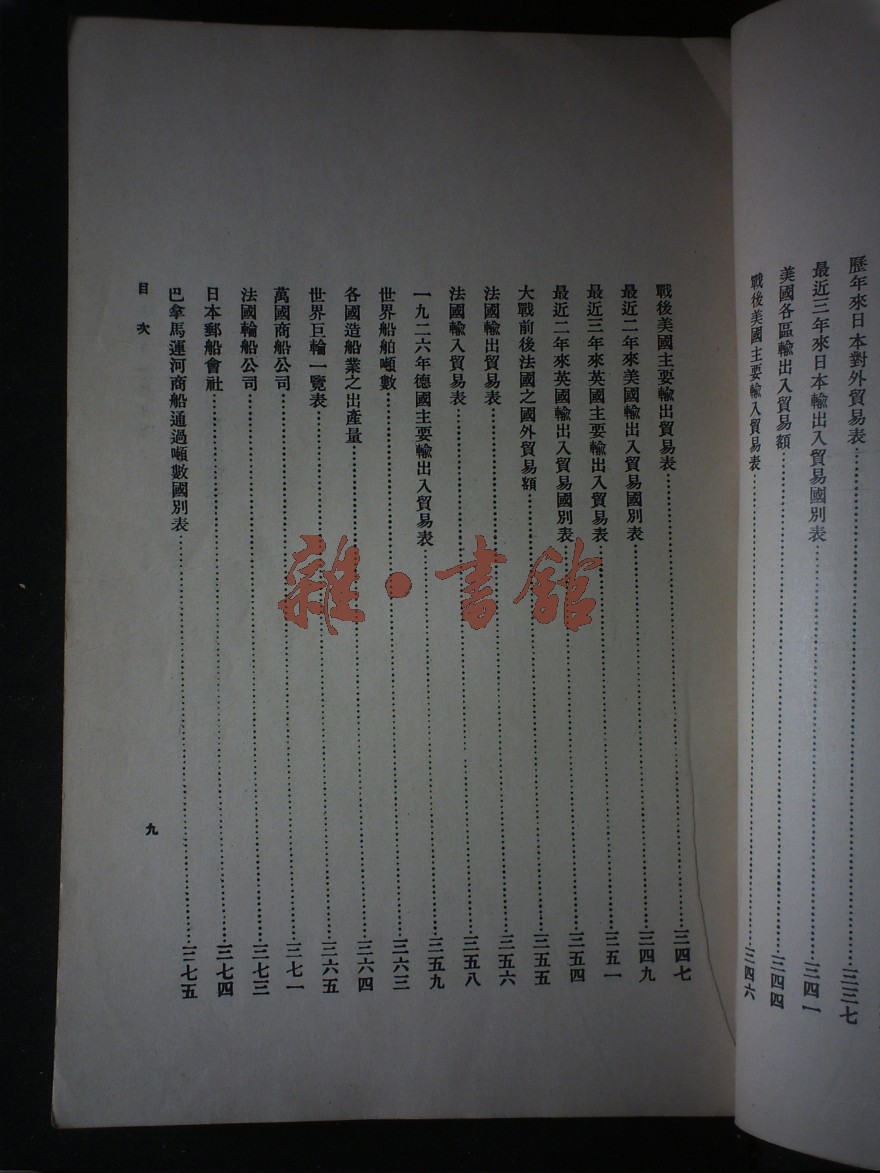 歷年來日本對外貿易表……三三七
最近三年來日本輸出入貿易國別表……三四一
美國各區輸出入貿易額……三四四
戰後美國主要輸入貿易表……三四六
戰後美國主要輸出貿易表……三四七
最近二年來美國輸出入貿易國別表……三四九
最近三年來英國主要輸出入貿易表……三五一
最近二年來英國輸出入貿易國別表……三五四
大戰前後法國之國外貿易額……三五五
法國輸出貿易表……三五六
法國輸入貿易表……三五八
一九二六年德國主要輸出入貿易表……三五九
世界船舶噸數……三六三
各國造船業之出產量……三六四
世界巨輪一覽表……三六五
萬國商船公司……三七一
法國輪船公司……三七三
日本郵船會社……三七四
巴拿馬運河商船通過噸數國別表……三七五
目次
九
雜·書館